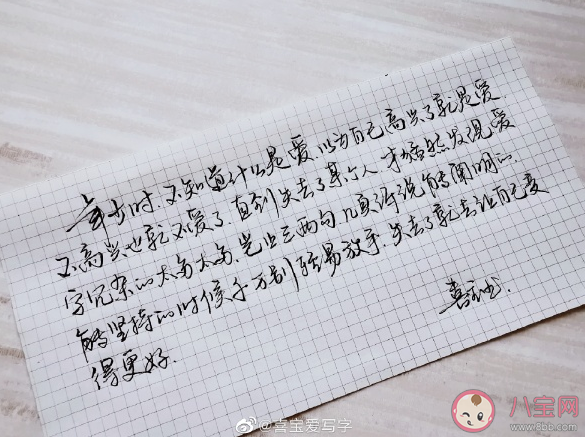 年少时.不知道什么是爱.以为自己高兴了就是爱
不高兴也就不爱了.直到失去了某个人.才惊然发现爱
字冗杂的太多太多.岂止三两句几页纸说能阐明的.
能坚持的时候千万别轻易放手.失去了就去让自己变
得更好.
喜宝
@喜宝爱写字
八宝网
www.8bb.com